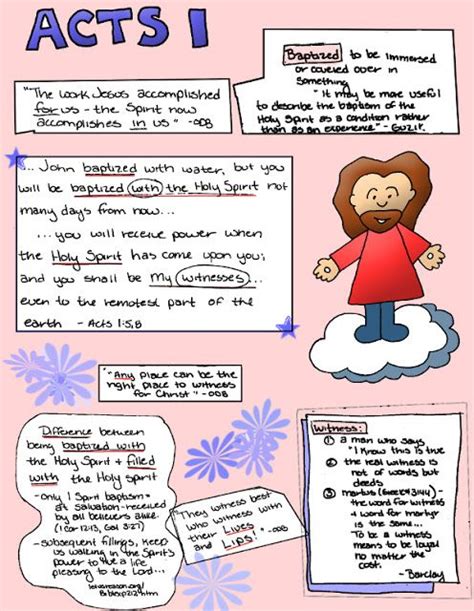 ACTS 1
"The work Jesus accomplished
for us - the Spirit now
accomplishes in us" -ODB
Baptized to be immersed
or covered over in
something
"It may be more useful
to describe the baptism of the
Holy Spirit as a condition rather
than as an experience" - Guzik
... John baptized with water, but you
will be baptized with the Holy Spirit not
many days from now...
...you will receive power when
the Holy Spirit has come upon you;
and you shall be My witnesses...
even to the remotest part of the
earth - Acts 1:5,8
"Any place can be the
right place to witness
for Christ" -ODB
Difference between
being baptized with
the Holy Spirit + filled
with the Holy Spirit
-only 1 Spirit baptism-
at salvation-received
by all believers alike.
(1 Cor 12:13, Gal 3:27)
-subsequent fillings, keep
us walking in the Spirit's
power to live a life
pleasing to the Lord...
"They witness best
who witness with
their Lives
and Lips!" -ODB
Witness:
① a man who says
"I know this is true"
② the real witness is
not of words but
deeds
③ martus (Greek #3144) -
the word for witness
+ word for martyr
is the same...
To be a witness
means to be loyal
no matter the
cost.
-Barclay